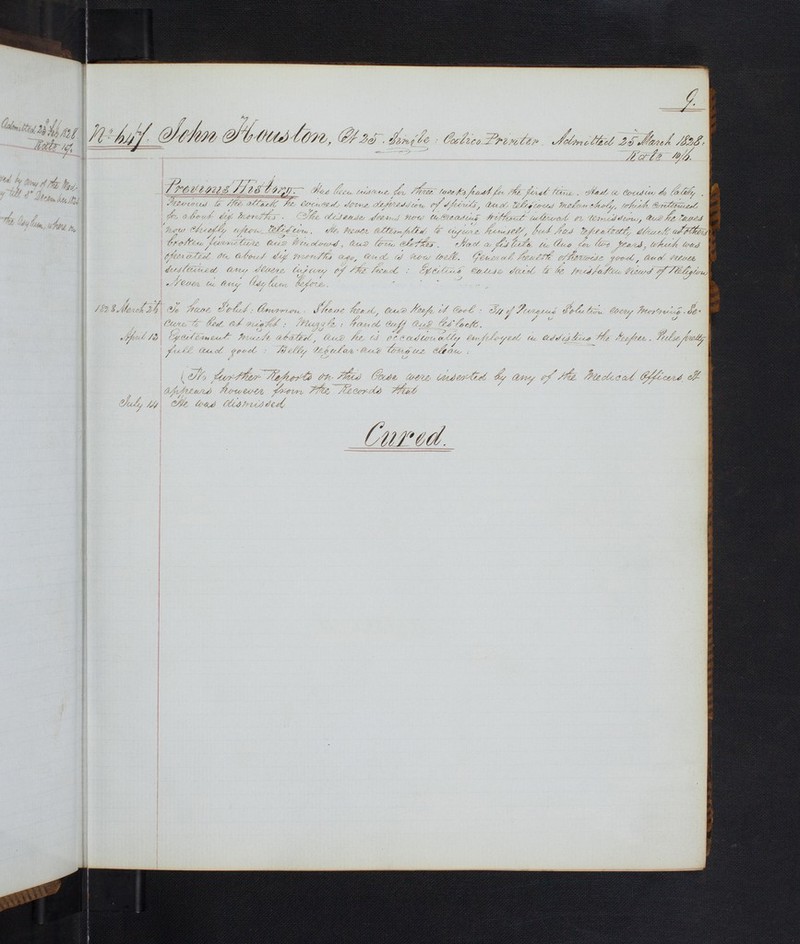 9.
No. 647. John Houston, Æt 25. Single. Calico Printer. Admitted 25 March 1828.
Rate 10/6.
Previous History. Has been insane for three weeks past for the first time. Had a cousin so lately.
Previous to the attack he evinced some depression of spirits, and religious melancholy, which continued
for about six months. The disease seems now increasing without interval or remission, and he raves
now chiefly upon religion. He never attempted to injure himself, but has repeatedly struck at others
broken furniture and windows, and torn clothes. Had a fistula in Ano for two years, which was
operated on about six months ago, and is now well. General health otherwise good, and never
sustained any severe injury of the head: Exciting cause said to be mistaken views of Religion
Never in any Asylum before.
1828 March 26 To have Solut. Ammon. Shave head, and keep it cool: 3 of Purging Solution every morning. Se-
cure to bed at night: Muzzle: hand cuff and leg lock.
April 12 Excitement much abated, and he is occasionally employed in assisting the keeper. Pulse pretty
full and good: Belly regular and tongue clean.
(No further Reports on this Case were inserted by any of the Medical Officers It
appears however from the Records that
July 14 He was dismissed
Cured.
Admitted 23 Feb 1828
Rate
any of the Med-
till
the Asylum, where